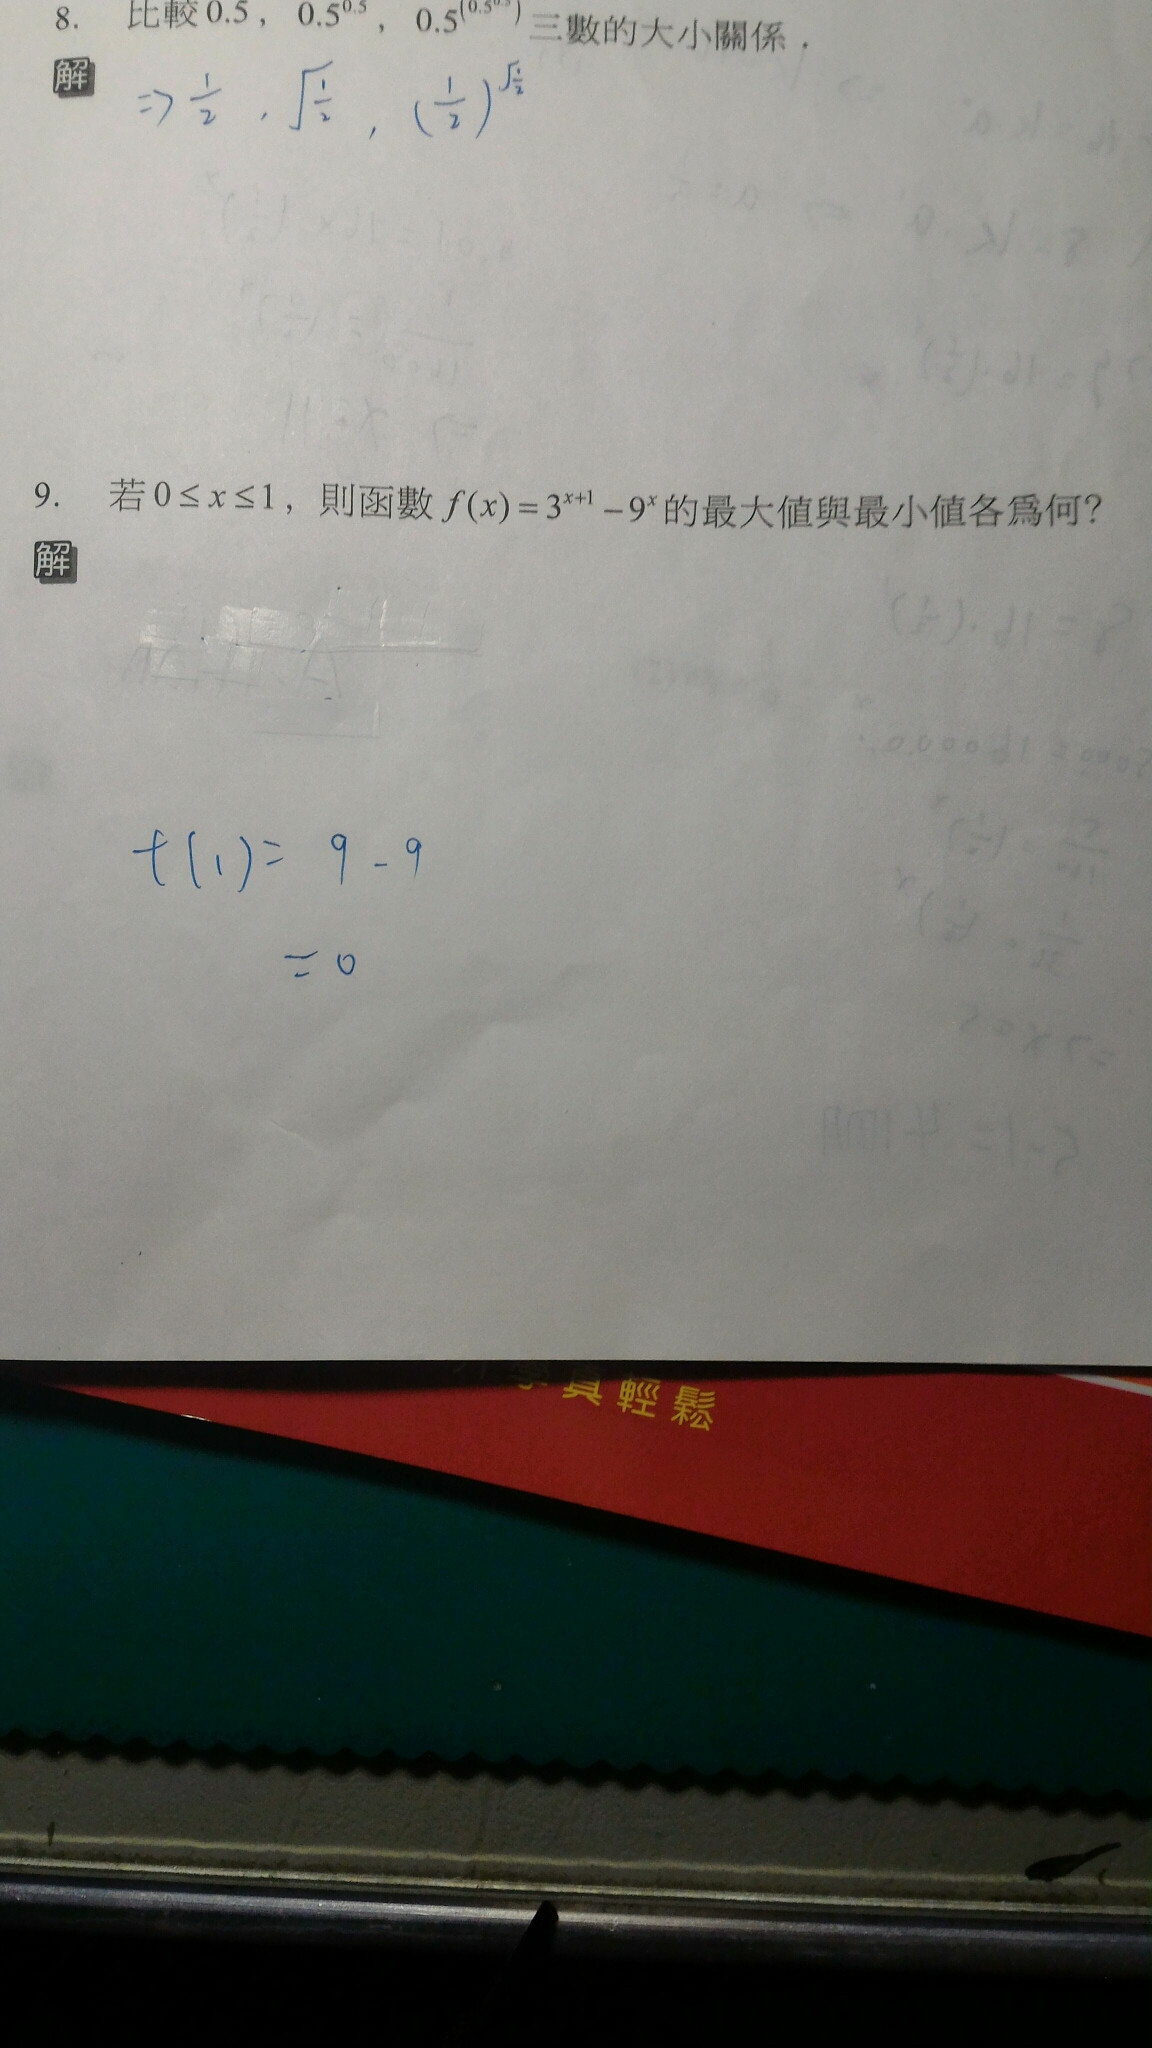 8. 比較 0.5, 0.5^0.5, 0.5^(0.5^0.5) 三數的大小關係.
解 ⇒ 1/2, √(1/2), (1/2)^√(1/2)
9. 若 0 ≤ x ≤ 1, 則函數 f(x) = 3^(x+1) − 9^x 的最大值與最小值各為何?
解
f(1) = 9 - 9
= 0
真輕鬆